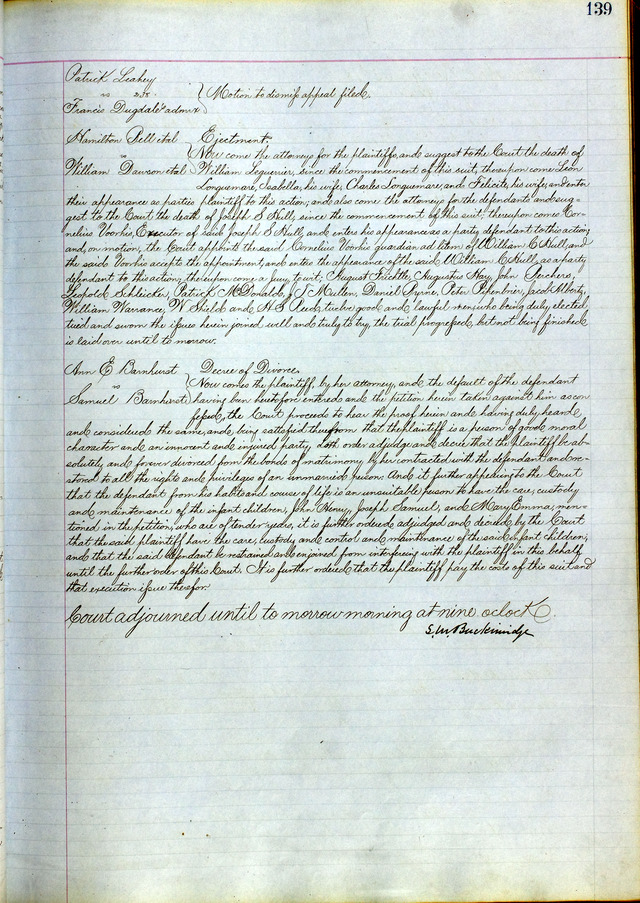 139
Patrick Leahey
vs
Francis Dugdale's admx
Motion to dismiss appeal filed.
Hamilton Bell et al
vs
William Dawson et al
Ejectment.
Now come the attorneys for the plaintiffs, and suggest to the Court the death of
William Leguerrier, since the commencement of this suit, thereupon come Leon
Longuemare, Isabella, his wife, Charles Longuemare, and Felicite, his wife, and enter
their appearance as parties plaintiff to this action, and also come the attorneys for the defendants and sug-
gest to the Court the death of Joseph S Hull, since the commencement of this suit. thereupon comes Cor-
nelius Voorhis, Executor of said Joseph S Hull, and enters his appearance as a party defendant to this action,
and, on motion, the Court appoint the said Cornelius Voorhis guardian ad litem of William C Hull, and
the said Voorhis accept the appointment, and enter the appearance of the said William C Hull, as a party
defendant to this action, thereupon come a Jury to wit, August Fricttle, Augustus Kay, John Gerchers,
Leopold Schleicker, Patrick McDonald, J J Mullen, Daniel Byrne, Peter Bifenbrier, Jacob Alberty,
William Warrance, W Shield and H S Reed, twelve good and lawful men who being duly elected
tried and sworn the issues herein joined well and truly to try, the trial progressed, but not being finished
is laid over until to morrow.
Ann E Barnhurst
vs
Samuel Barnhurst
Decree of Divorce.
Now comes the plaintiff, by her attorney, and the default of the defendant
having been heretofore entered and the petition herein taken against him as con
fessed, the Court proceeds to hear the proof herein and having duly heard
and considered the same, and, being satisfied therefrom that the plaintiff is a person of good moral
character and an innocent and injured party, doth order adjudge and decree that the plaintiff be ab-
solutely, and forever divorced from the bonds of matrimony by her contracted with the defendant and re-
stored to all the rights and privileges of an unmarried person. And it further appearing to the Court
that the defendant from his habits and course of life is an unsuitable person to have the care, custody
and maintenance of the infant children, John Henry, Joseph Samuel, and Mary Emma, men-
tioned in the petition, who are of tender years, it is further ordered adjudged and decreed, by the Court
that the said plaintiff have the care, custody and control and maintenance of the said infant children,
and that the said defendant be restrained and enjoined from interfering with the plaintiff in this behalf
until the further order of this Court. It is further ordered that the plaintiff pay the costs of this suit and
that execution issue therefor.
Court adjourned until to morrow morning at nine oclock
S. M. Breckinridge